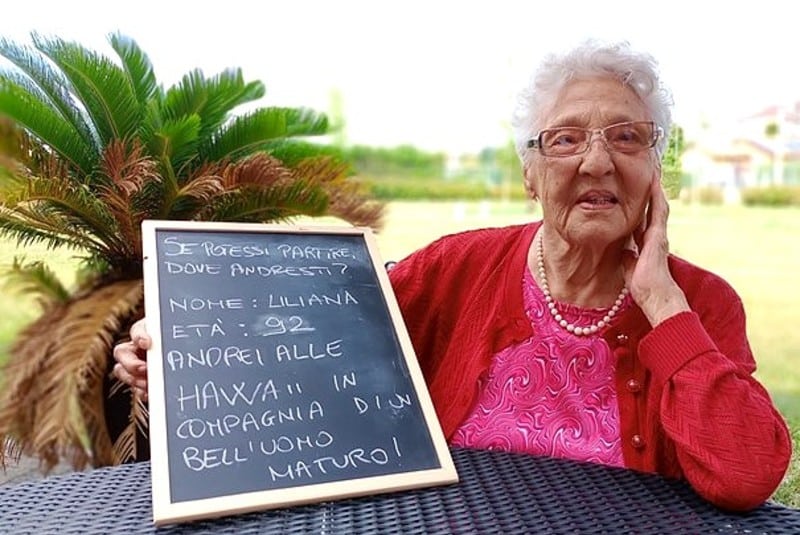 SE POTESSI PARTIRE,
DOVE ANDRESTI?
NOME: LILIANA
ETÀ: 92
ANDREI ALLE
HAWAII IN
COMPAGNIA DI UN
BELL'UOMO
MATURO!